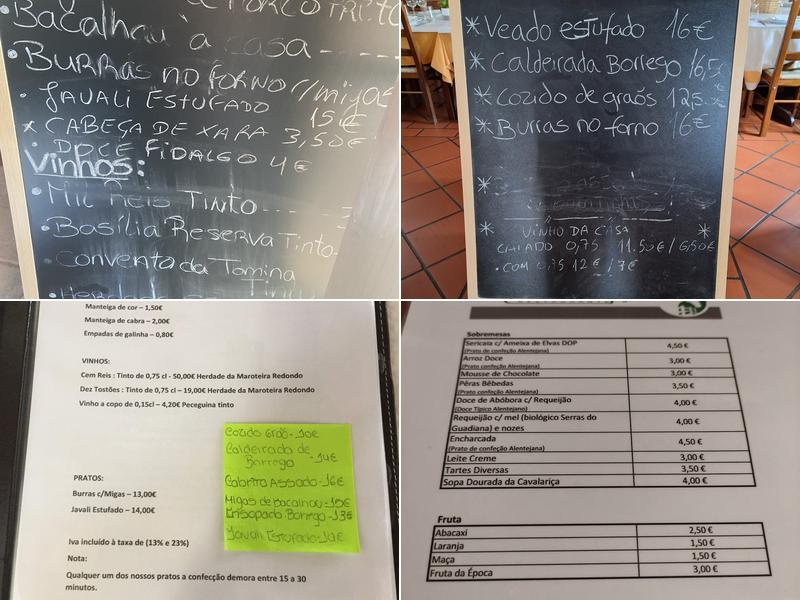 Bacalhau à casa
• Burras no forno c/migas
• Javali Estufado 15€
* Cabeça de Xara 3,50€
• Doce Fidalgo 4€
Vinhos:
• Mil Reis Tinto
• Basília Reserva Tinto
• Conventa da Tomina
Tinto
* Veado estufado 16€
* Caldeirada Borrego 16,5€
* Cozido de graõs 12,5
* Burras no forno 16€
*
* VINHO DA CASA *
CHIADO 0,75 11.50€ / 6,50€
• COM 0,75 12€ / 7€
Manteiga de cor – 1,50€
Manteiga de cabra – 2,00€
Empadas de galinha – 0,80€
VINHOS:
Cem Reis : Tinto de 0,75 cl - 50,00€ Herdade da Maroteira Redondo
Dez Tostões : Tinto de 0,75 cl – 19,00€ Herdade da Maroteira Redondo
Vinho a copo de 0,15cl – 4,20€ Peceguina tinto
Cozido Graõ - 10€
Caldeirada de
Borrego - 14€
Cabrito Assado - 16€
Migas de Bacalhau - 15€
Ensopado Borrego - 13€
Javali Estufado - 14€
PRATOS:
Burras c/Migas – 13,00€
Javali Estufado – 14,00€
Iva incluído à taxa de (13% e 23%)
Nota:
Qualquer um dos nossos pratos a confecção demora entre 15 a 30
minutos.
Sobremesas
Sericaia c/ Ameixa de Elvas DOP 4,50 €
(Prato de confeção Alentejana)
Arroz Doce 3,00 €
(Prato confeção Alentejana)
Mousse de Chocolate 3,00 €
Pêras Bêbedas 3,50 €
(Prato confeção Alentejano)
Doce de Abóbora c/ Requeijão 4,00 €
(Doce Típico Alentejano)
Requeijão c/ mel (biológico Serras do
Guadiana) e nozes 4,00 €
Encharcada 4,50 €
(Prato de confeção Alentejana)
Leite Creme 3,00 €
Tartes Diversas 3,50 €
Sopa Dourada da Cavalariça 4,00 €
Fruta
Abacaxi 2,50 €
Laranja 1,50 €
Maça 1,50 €
Fruta da Época 3,00 €